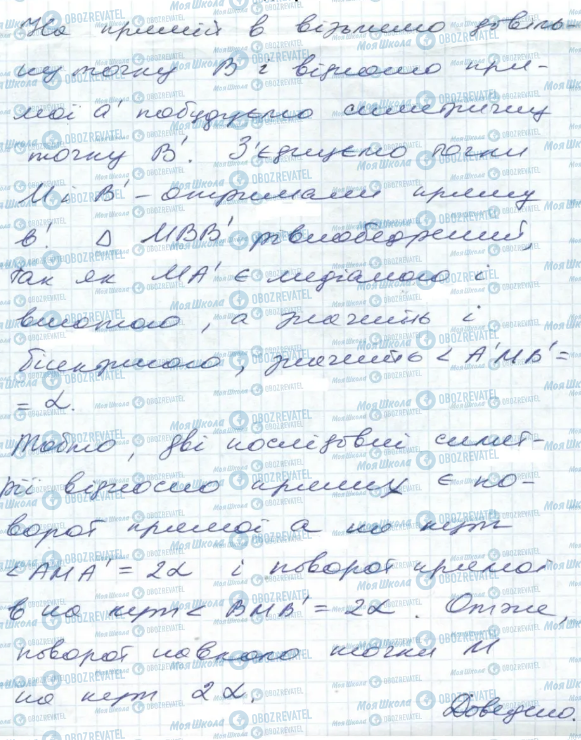 На прямій в візьмемо довіль-
ну точку B і відносно пря-
мої a' побудуємо симетричну
точку B'. З'єднуємо точки
M і B' - отримали пряму
в'. Δ MBB' рівнобедрений,
так як MA' є медіаною і
висотою, а значить і
бісектрисою, значить < A'MB' =
= α.
Тобто, дві послідовні симет-
рії відносно прямих є по-
ворот прямої a на кут
< AMA' = 2α і поворот прямої
в на кут < BMB' = 2α. Отже,
поворот навколо точки M
на кут 2α.
Доведено.
Моя Школа OBOZREVATEL